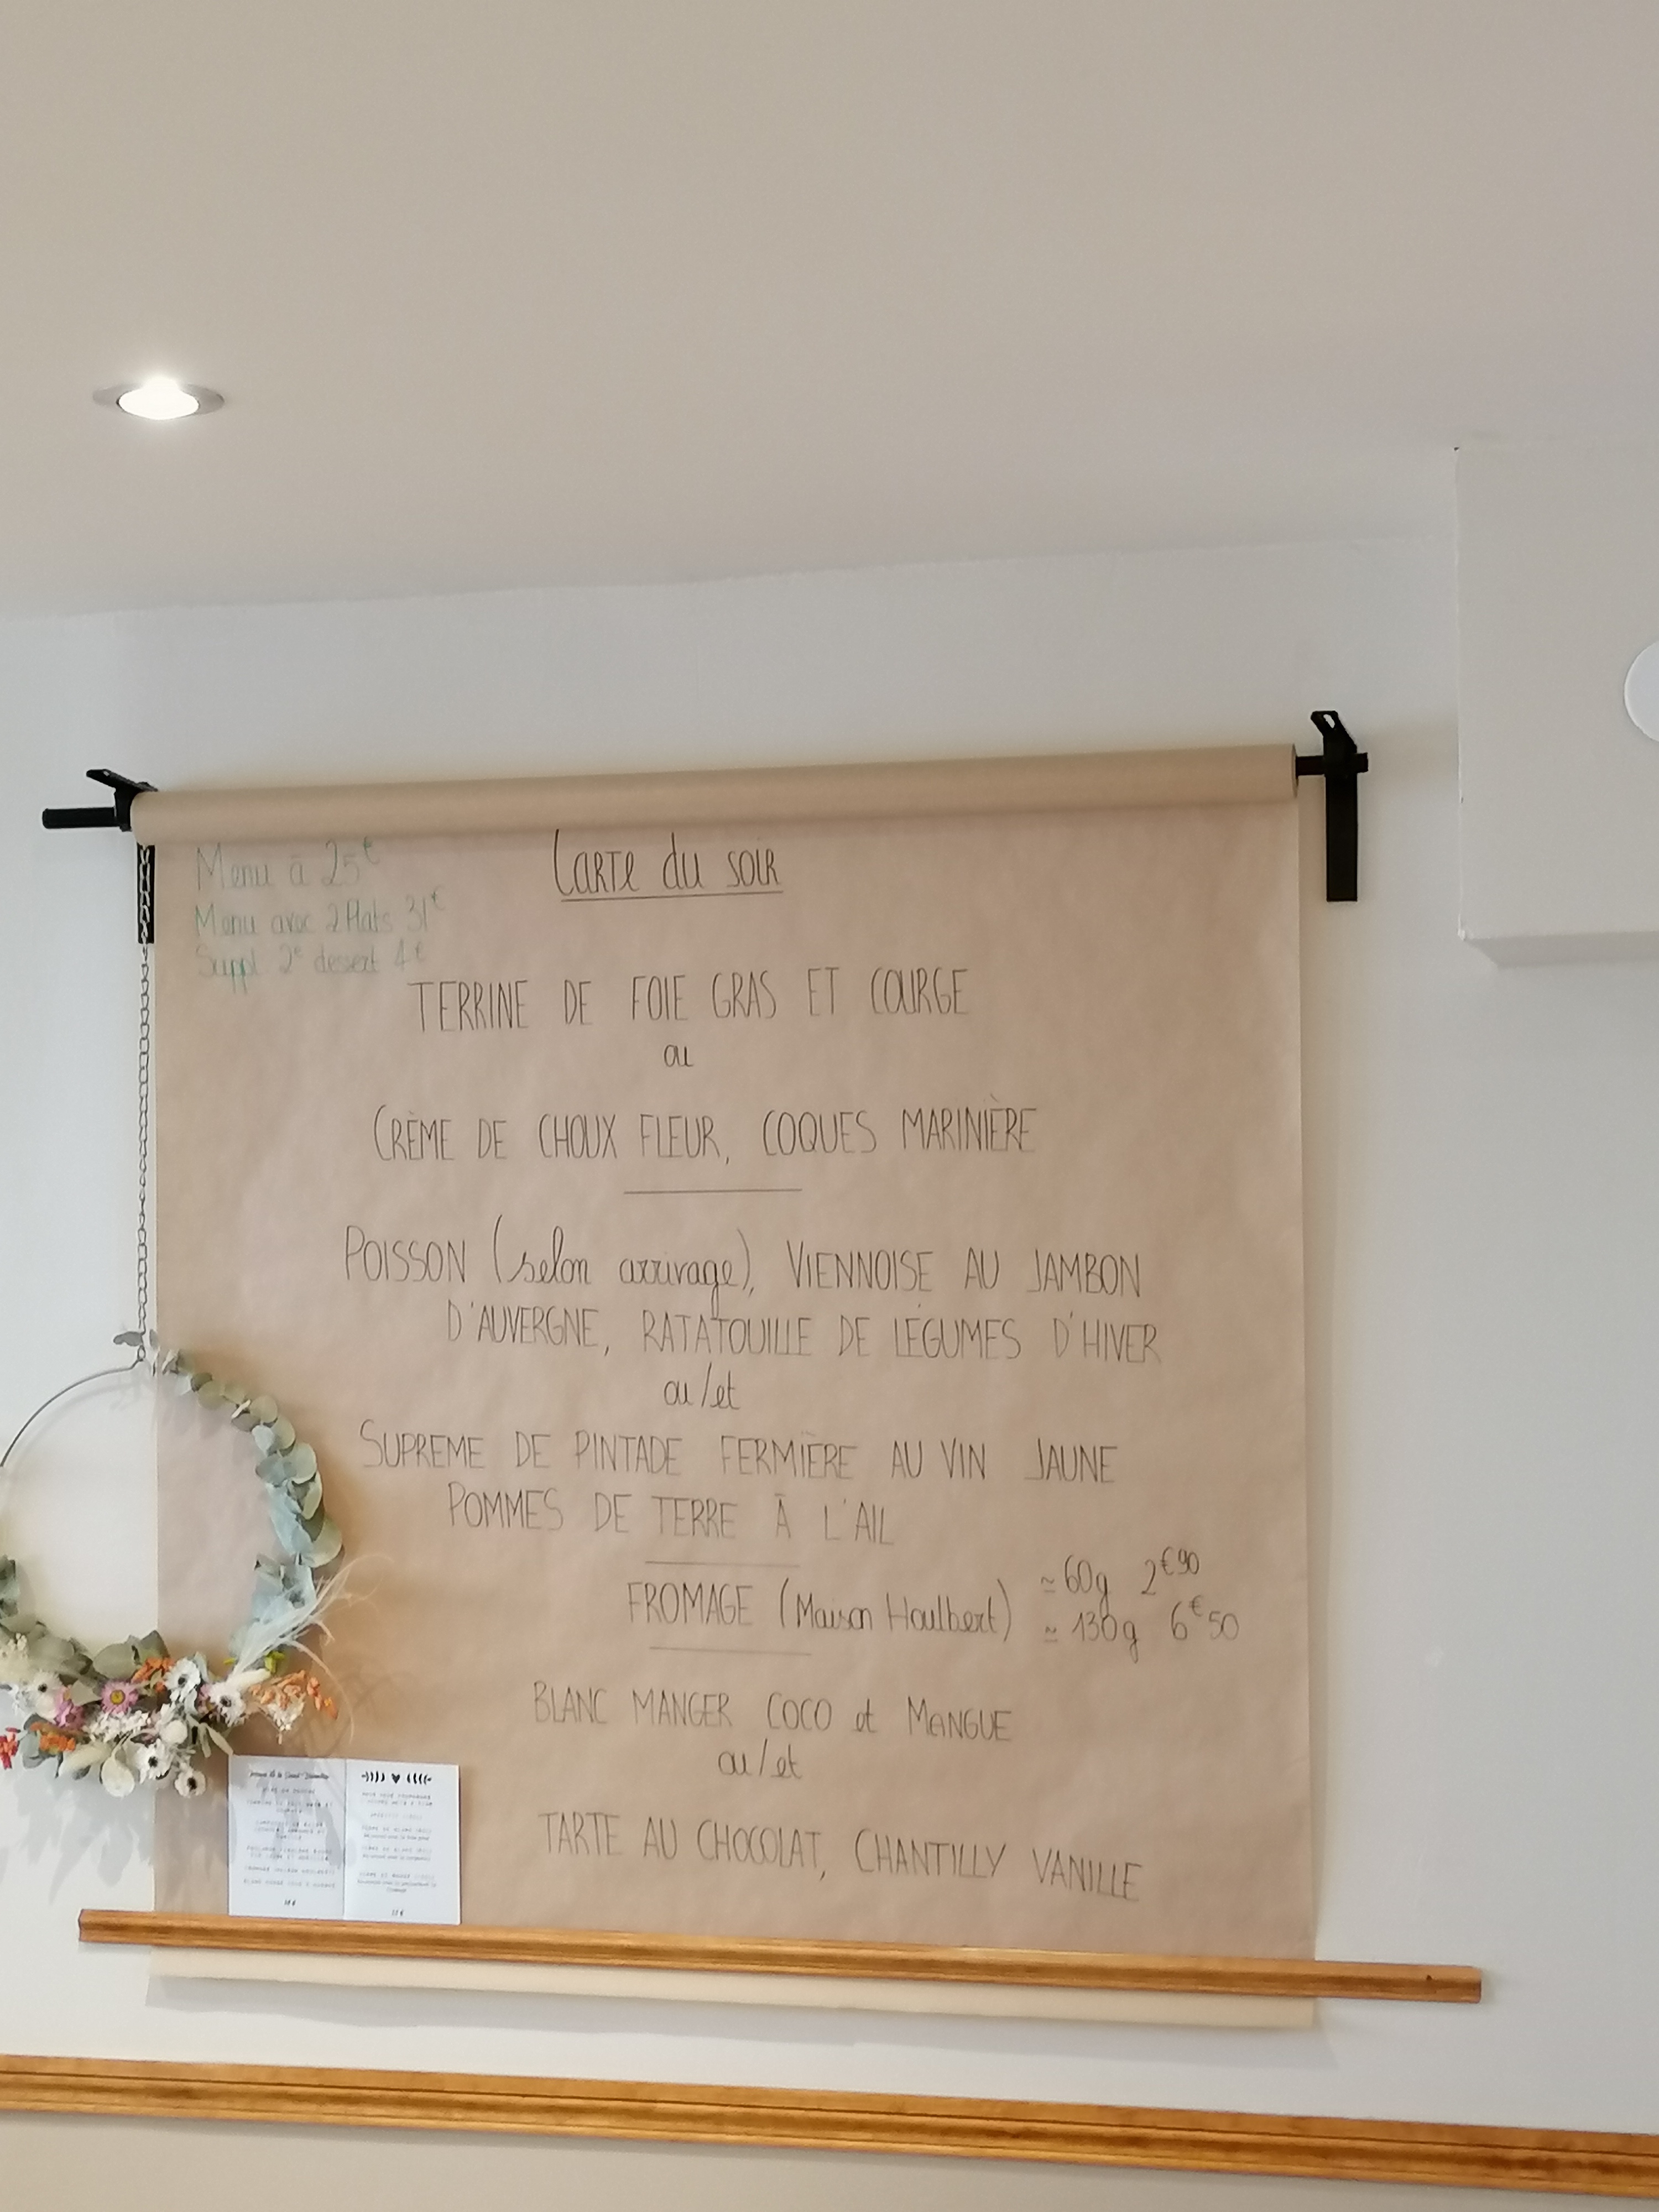 Menu à 25€
Menu avec 2 Plats 31€
Suppl. 2e desert 4€
CARTE du SOIR
TERRINE DE FOIE GRAS ET COURGE
ou
CRÈME DE CHOUX FLEUR, COQUES MARINIÈRE
POISSON (selon arrivage), VIENNOISE AU JAMBON
D'AUVERGNE, RATATOUILLE DE LÉGUMES D'HIVER
ou/et
SUPREME DE PINTADE FERMIÈRE AU VIN JAUNE
POMMES DE TERRE À L'AIL
FROMAGE (Maison Houlbert) ≃ 60g 2€90
≃ 130g 6€50
BLANC MANGER COCO et MANGUE
ou/et
TARTE AU CHOCOLAT, CHANTILLY VANILLE